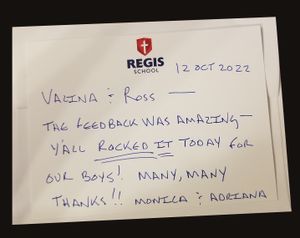 REGIS
SCHOOL
12 OCT 2022
VALINA & ROSS —
THE FEEDBACK WAS AMAZING —
Y'ALL ROCKED IT TODAY FOR
OUR BOYS! MANY, MANY
THANKS!! MONICA & ADRIANA